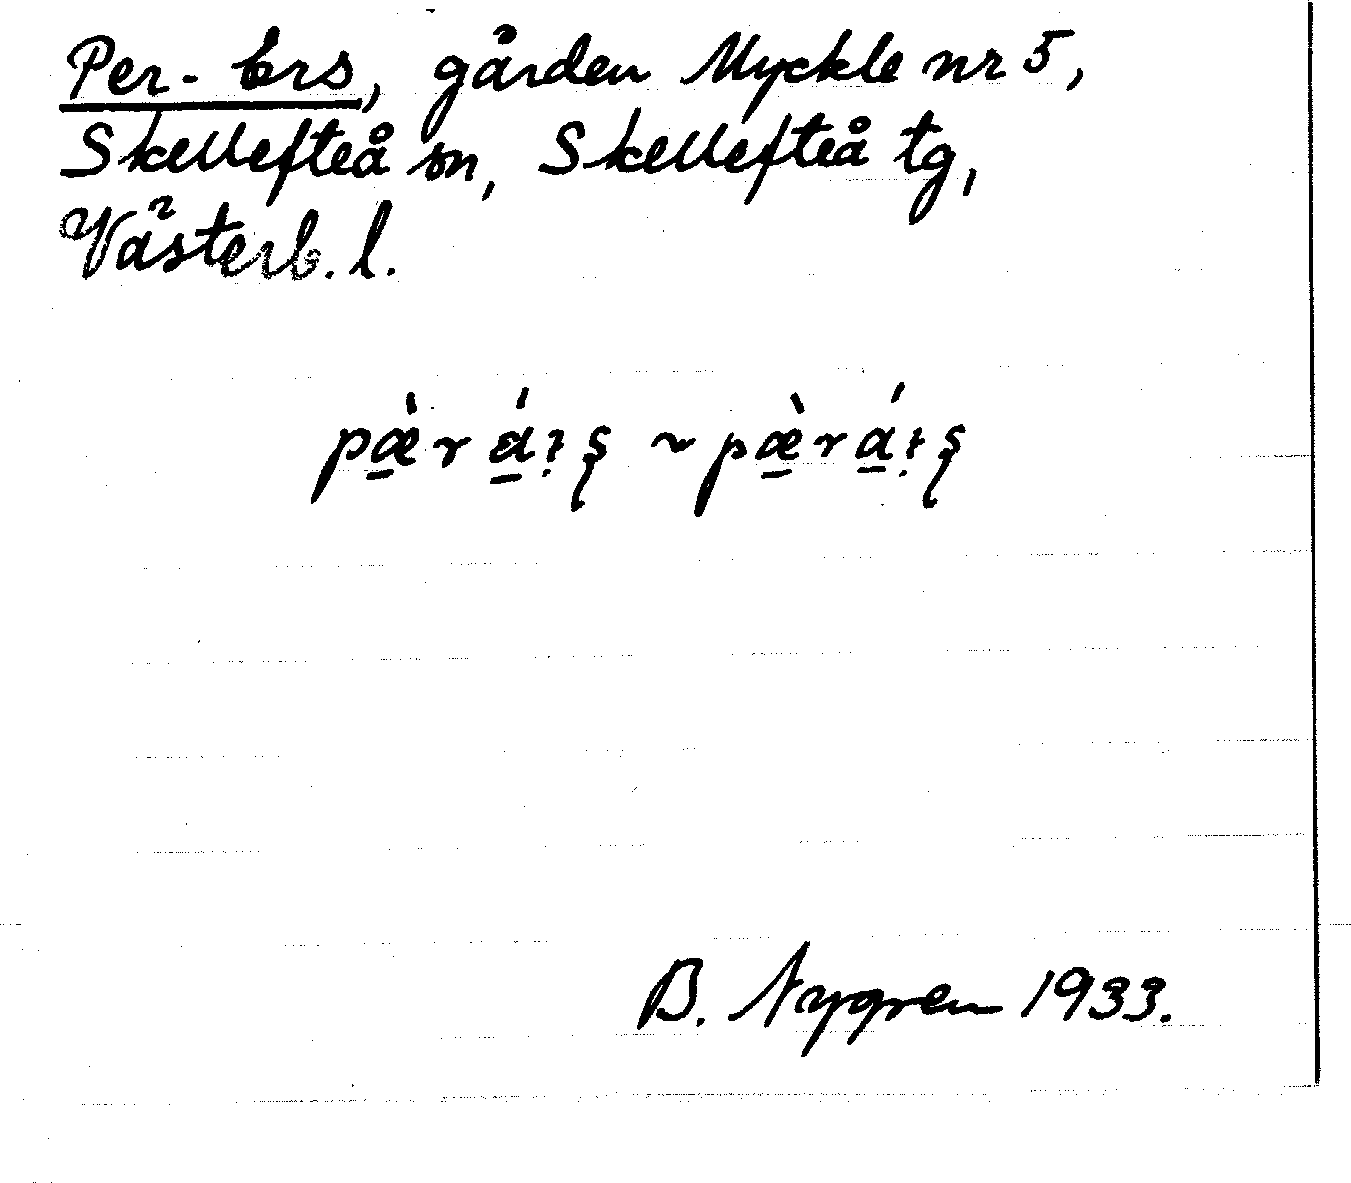 Per-Ers, gården Myckle nr 5,
Skellefteå sn, Skellefteå tg,
Västerb. l.
B. Nygren 1933.